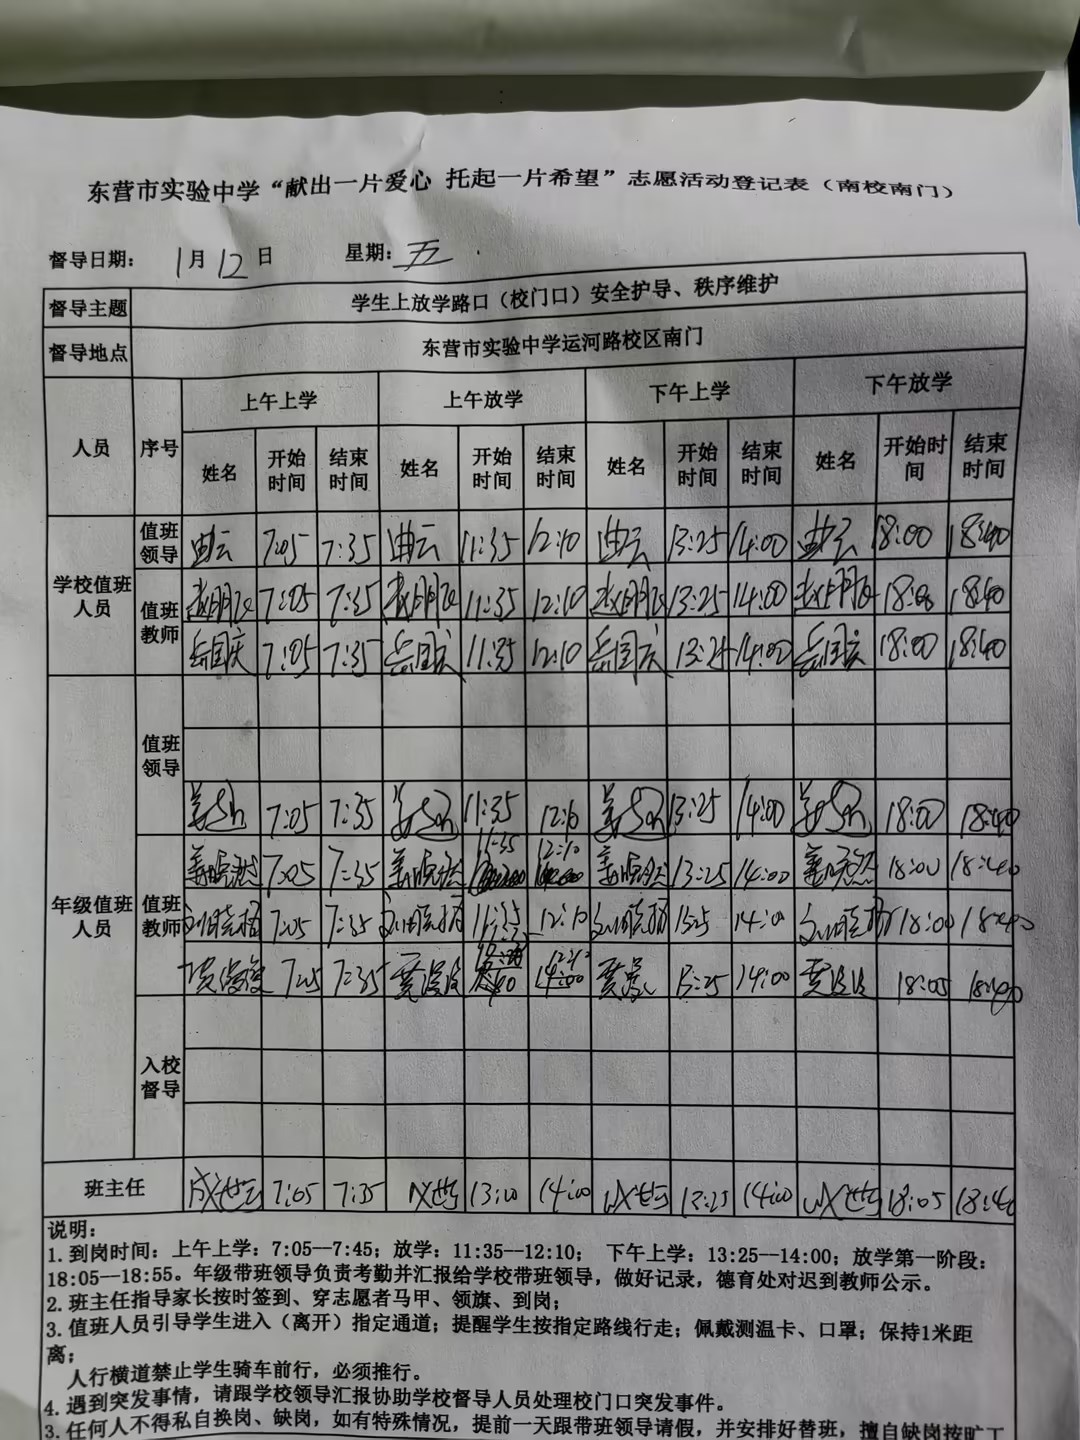 东营市实验中学“献出一片爱心 托起一片希望”志愿活动登记表（南校南门）
督导日期： 1月12日 星期：五
督导主题 学生上放学路口（校门口）安全护导、秩序维护
督导地点 东营市实验中学运河路校区南门
人员 序号 上午上学 上午放学 下午上学 下午放学
姓名 开始时间 结束时间 姓名 开始时间 结束时间 姓名 开始时间 结束时间 姓名 开始时间 结束时间
学校值班人员 值班领导 曲云 7:05 7:35 曲云 11:35 12:10 曲云 13:25 14:00 曲云 18:00 18:40
值班教师 7:05 7:35 11:35 12:10 13:25 14:00 18:00 18:40
岳国庆 7:05 7:35 岳国庆 11:35 12:10 岳国庆 13:25 14:00 岳国庆 18:00 18:40
年级值班人员 值班领导
7:05 7:35 11:35 12:10 13:25 14:00 18:00 18:40
值班教师 姜晓然 7:05 7:35 姜晓然 11:35 12:10 姜晓然 13:25 14:00 姜晓然 18:00 18:40
7:05 7:35 11:35 12:10 13:25 14:00 18:00 18:40
7:05 7:35 13:25 14:00 18:05 18:40
入校督导
班主任 7:05 7:35 13:00 14:00 13:25 14:00 18:05 18:40
说明：
1. 到岗时间：上午上学：7:05--7:45；放学：11:35--12:10； 下午上学：13:25--14:00；放学第一阶段：
18:05--18:55。年级带班领导负责考勤并汇报给学校带班领导，做好记录，德育处对迟到教师公示。
2. 班主任指导家长按时签到、穿志愿者马甲、领旗、到岗；
3. 值班人员引导学生进入（离开）指定通道；提醒学生按指定路线行走；佩戴测温卡、口罩；保持1米距
离；
人行横道禁止学生骑车前行，必须推行。
4. 遇到突发事情，请跟学校领导汇报协助学校督导人员处理校门口突发事件。
3. 任何人不得私自换岗、缺岗，如有特殊情况，提前一天跟带班领导请假，并安排好替班，擅自缺岗按旷工